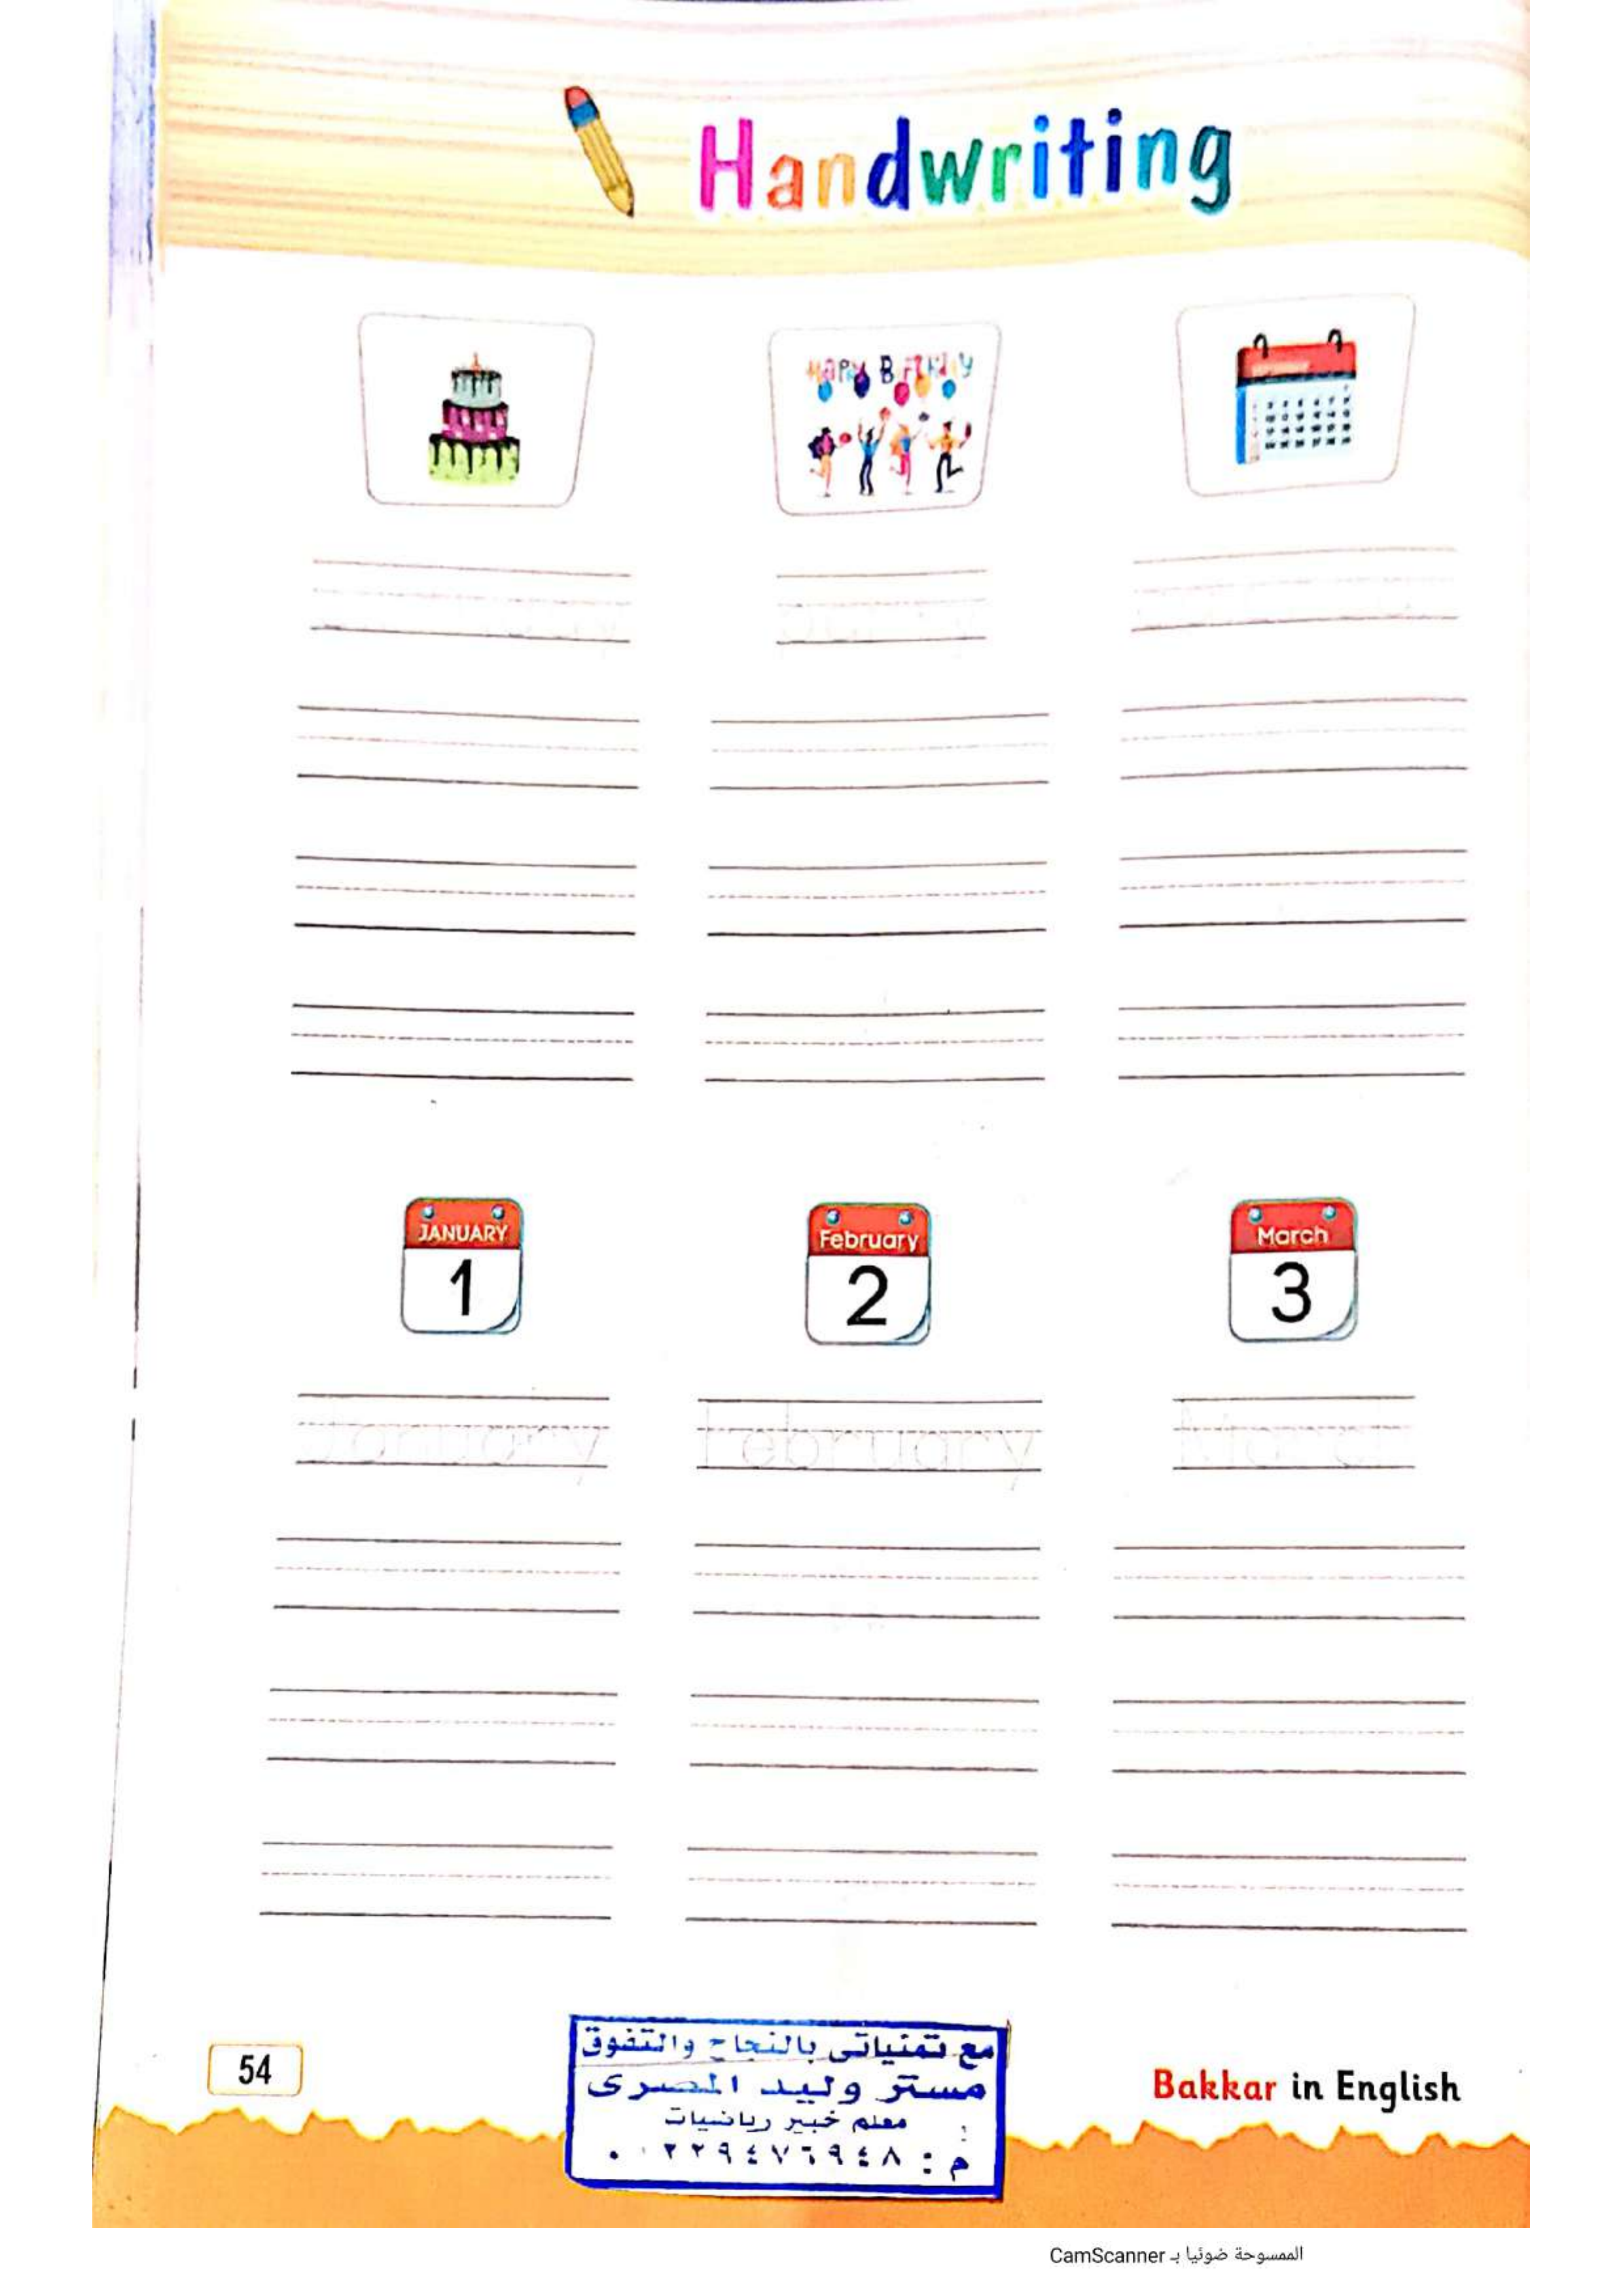 Handwriting
HAPPY BIRTHDAY
JANUARY
1
February
2
March
3
January
February
March
54
مع تمنياتى بالنجاح والتفوق
مستر وليد المصرى
معلم خبير رياضيات
م : ٠١٢٢٩٤٧٦٩٤٨
Bakkar in English
الممسوحة ضوئيا بـ CamScanner